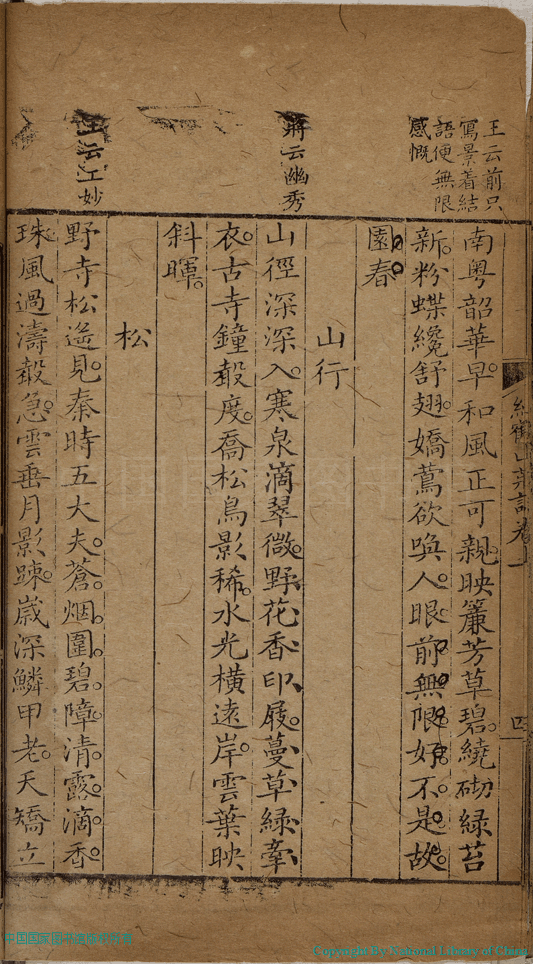 王云前只
寫景着結
語便無限
感慨
南粤韶華早和風正可親映簾芳草碧繞砌綠苔
新粉蝶纔舒翅嬌鶯欲喚人眼前無限好不是故
園春
山行
蔣云幽秀
山徑深深入寒泉滴翠微野花香印屐蔓草綠牽
衣古寺鐘聲度喬松鳥影稀水光橫遠岸雲葉映
斜暉
松
王云工妙
野寺松遙見秦時五大夫蒼烟圍碧障清露滴香
珠風過濤聲急雲垂月影疎歲深鱗甲老天矯立
山菜詩卷一
四
中国国家图书馆
Copyright By National Library of China